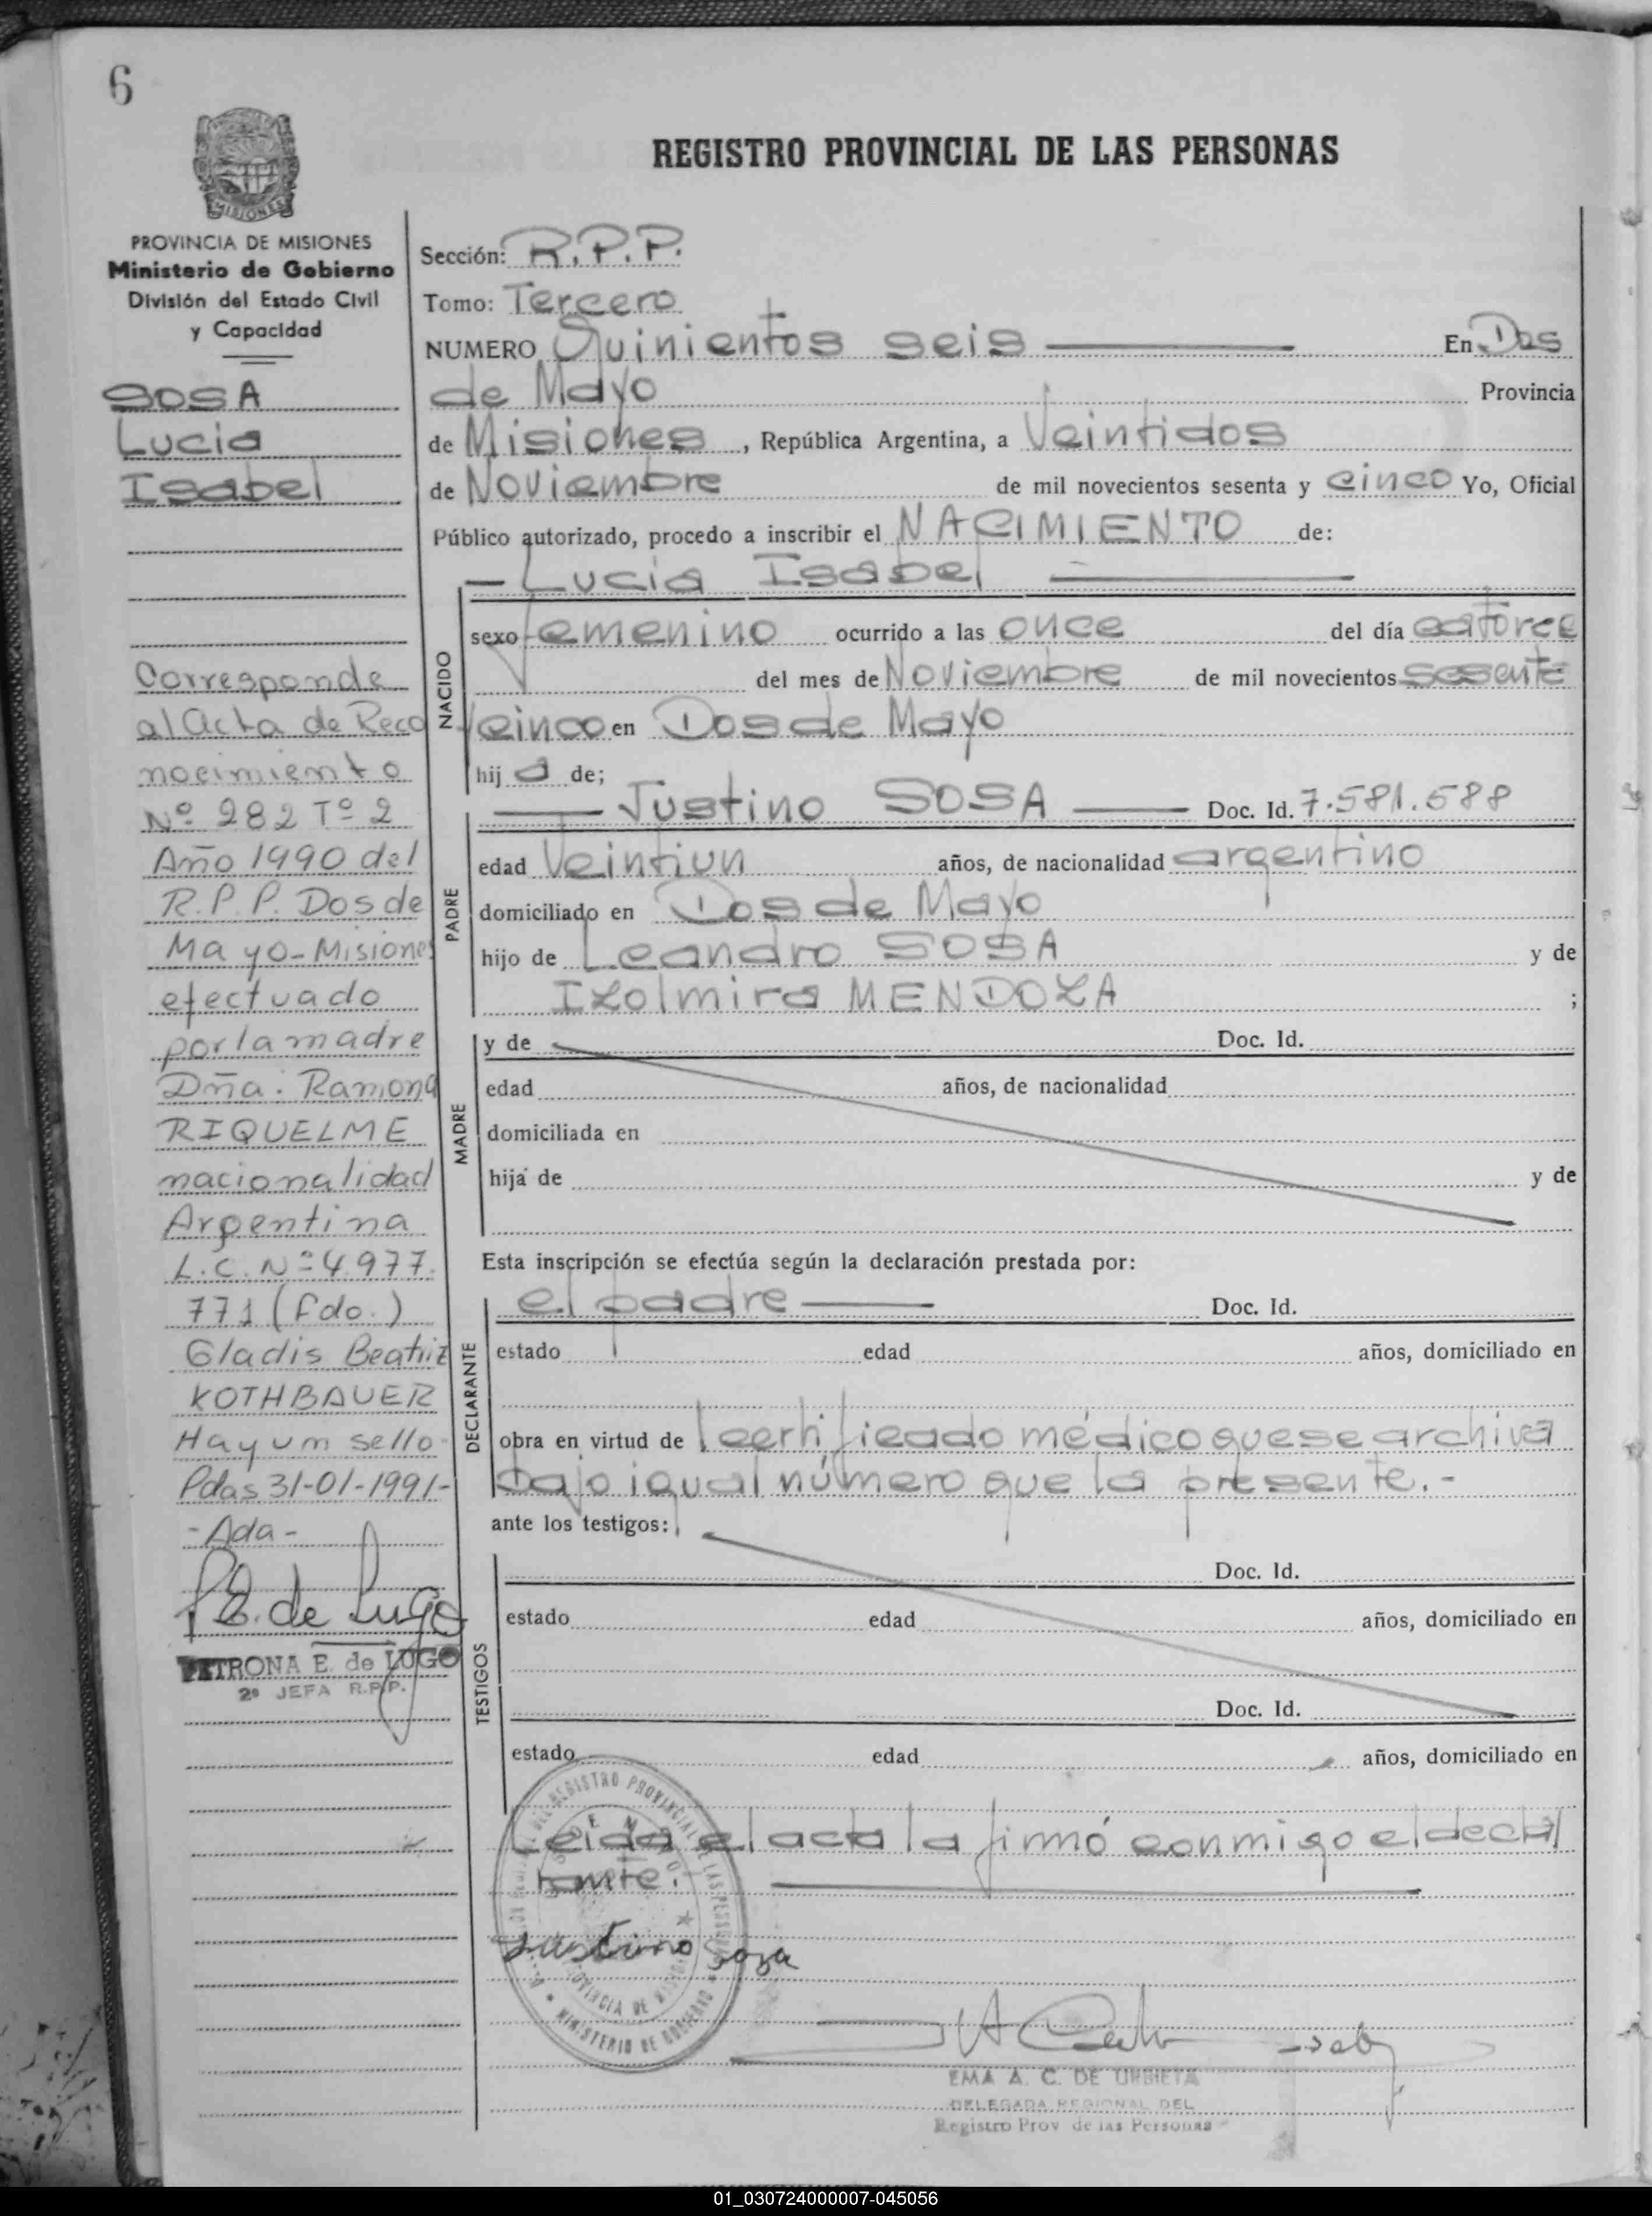 6
MISIONES
REGISTRO PROVINCIAL DE LAS PERSONAS
PROVINCIA DE MISIONES
Ministerio de Gobierno
División del Estado Civil
y Capacidad
SOSA
Lucia
Isabel
Corresponde
al Acta de Reco
nocimiento
Nº 282 Tº 2
Año 1990 del
R.P.P. Dos de
Mayo-Misiones
efectuado
por la madre
Dña: Ramona
RIQUELME
nacionalidad
Argentina
L.C. Nº 4.977.
771 (fdo.)
Gladis Beatriz
KOTHBAUER
Hay um sello-
Pdas 31-01-1991-
-Ada-
P E. de Lugo
PETRONA E. de LUGO
2ª JEFA R.P.P.
Sección: R.P.P.
Tomo: Tercero
NUMERO Quinientos seis En Dos
de Mayo Provincia
de Misiones, República Argentina, a Veintidos
de Noviembre de mil novecientos sesenta y cinco Yo, Oficial
Público autorizado, procedo a inscribir el NACIMIENTO de:
— Lucia Isabel —
NACIDO
sexo femenino ocurrido a las once del día catorce
del mes de Noviembre de mil novecientos sesenta
y cinco en Dos de Mayo
hij a de;
PADRE
— Justino SOSA — Doc. Id. 7.581.688
edad Veintiun años, de nacionalidad argentino
domiciliado en Dos de Mayo
hijo de Leandro SOSA y de
Izolmira MENDOZA ;
MADRE
y de Doc. Id.
edad años, de nacionalidad
domiciliada en
hija de y de
Esta inscripción se efectúa según la declaración prestada por:
DECLARANTE
el padre — Doc. Id.
estado edad años, domiciliado en
obra en virtud de 1 certificado médico que se archiva
bajo igual número que la presente.-
ante los testigos:
TESTIGOS
Doc. Id.
estado edad años, domiciliado en
Doc. Id.
estado edad años, domiciliado en
Leida el acta la firmó conmigo el decla
rante.
Justino Soza
PROVINCIA DE MISIONES
MINISTERIO DE GOBIERNO
EMA A. C. DE URBIETA
DELEGADA REGIONAL DEL
Registro Prov de las Personas
01_030724000007-045056